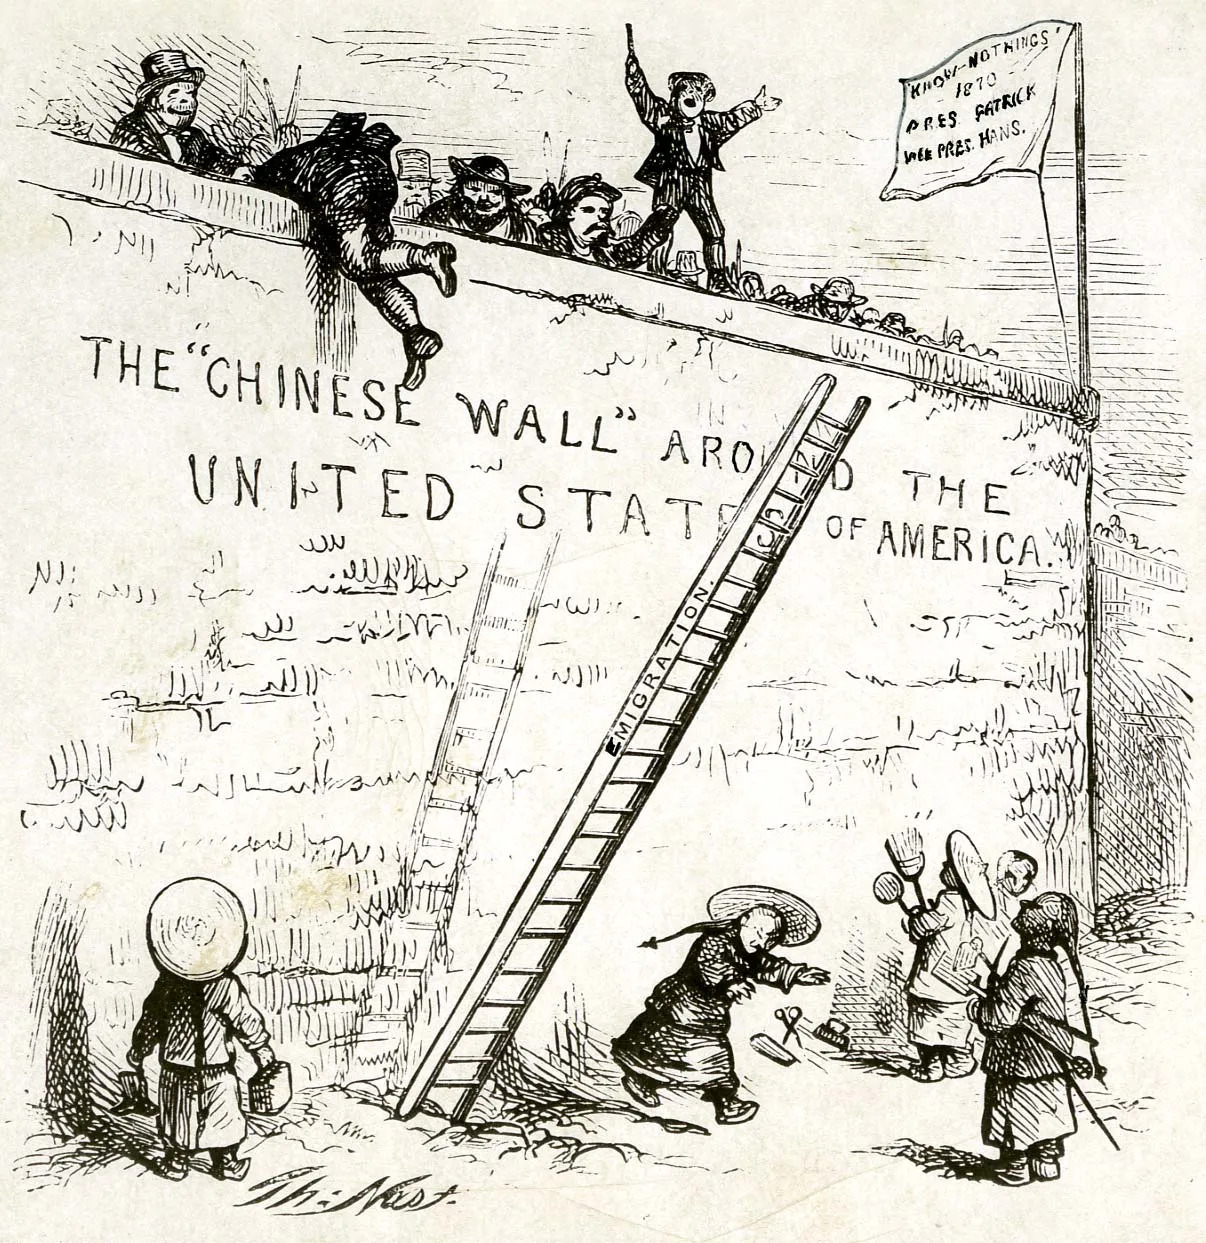 "KNOW-NOTHINGS"
1870
PRES. PATRICK
VICE PRES. HANS.
THE "CHINESE WALL" AROUND THE
UNITED STATES OF AMERICA.
EMIGRATION.
Th: Nast.